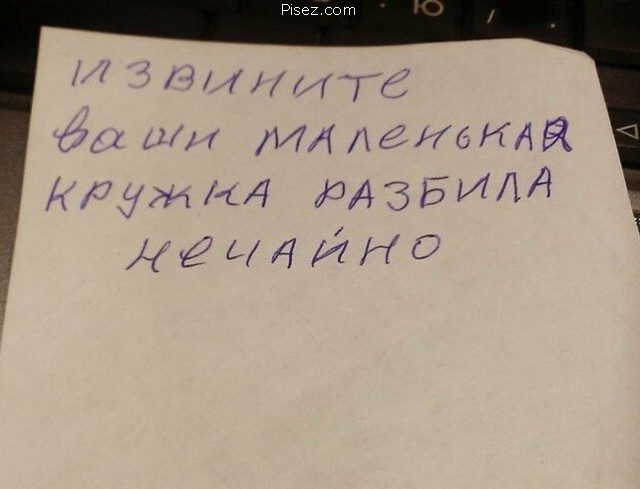 Pisez.com
Ю
извините
ваши маленькая
кружка разбила
нечайно